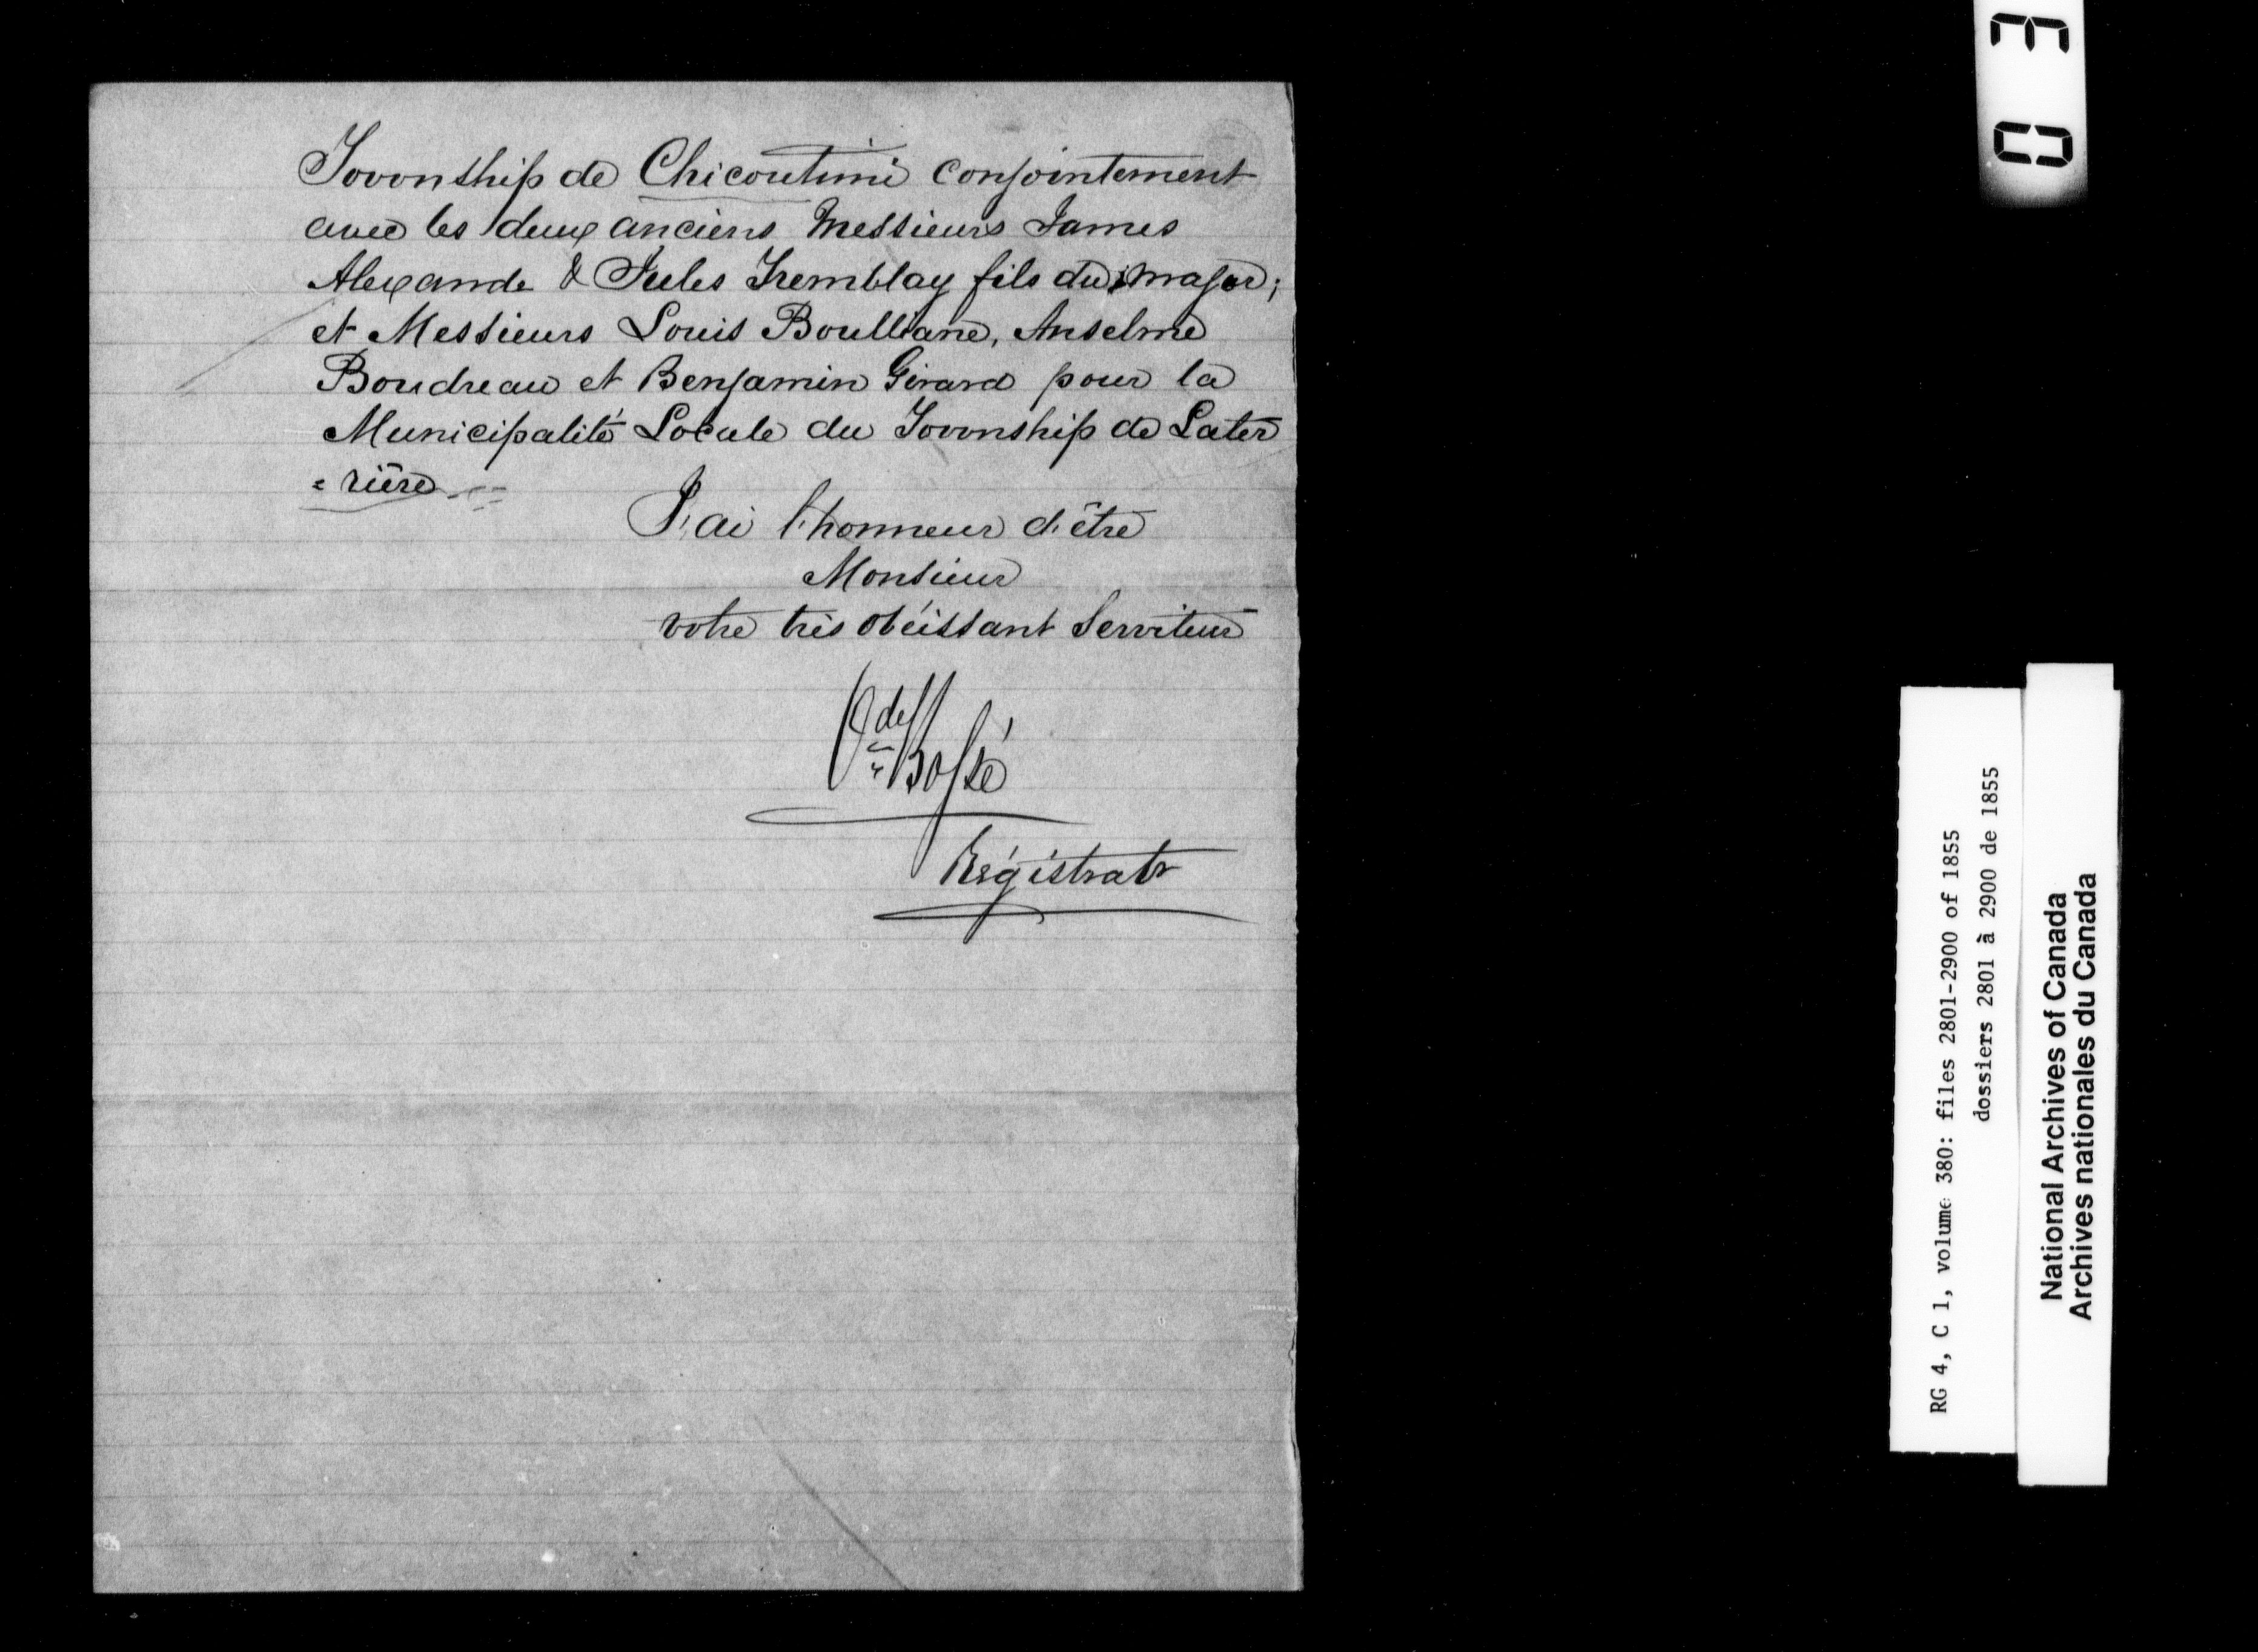 Township de Chicoutimi conjointement
avec les deux anciens Messieurs James
Alexande & Jules Tremblay fils du major;
et Messieurs Louis Boulliane, Anselme
Boudreau et Benjamin Girard pour la
Municipalité Locale du Township de Later
= rière
J'ai l'honneur d'être
Monsieur
votre très obéissant Serviteur
Bossé
Régistratr
RG 4, C 1, volume 380: files 2801-2900 of 1855
dossiers 2801 à 2900 de 1855
National Archives of Canada
Archives nationales du Canada